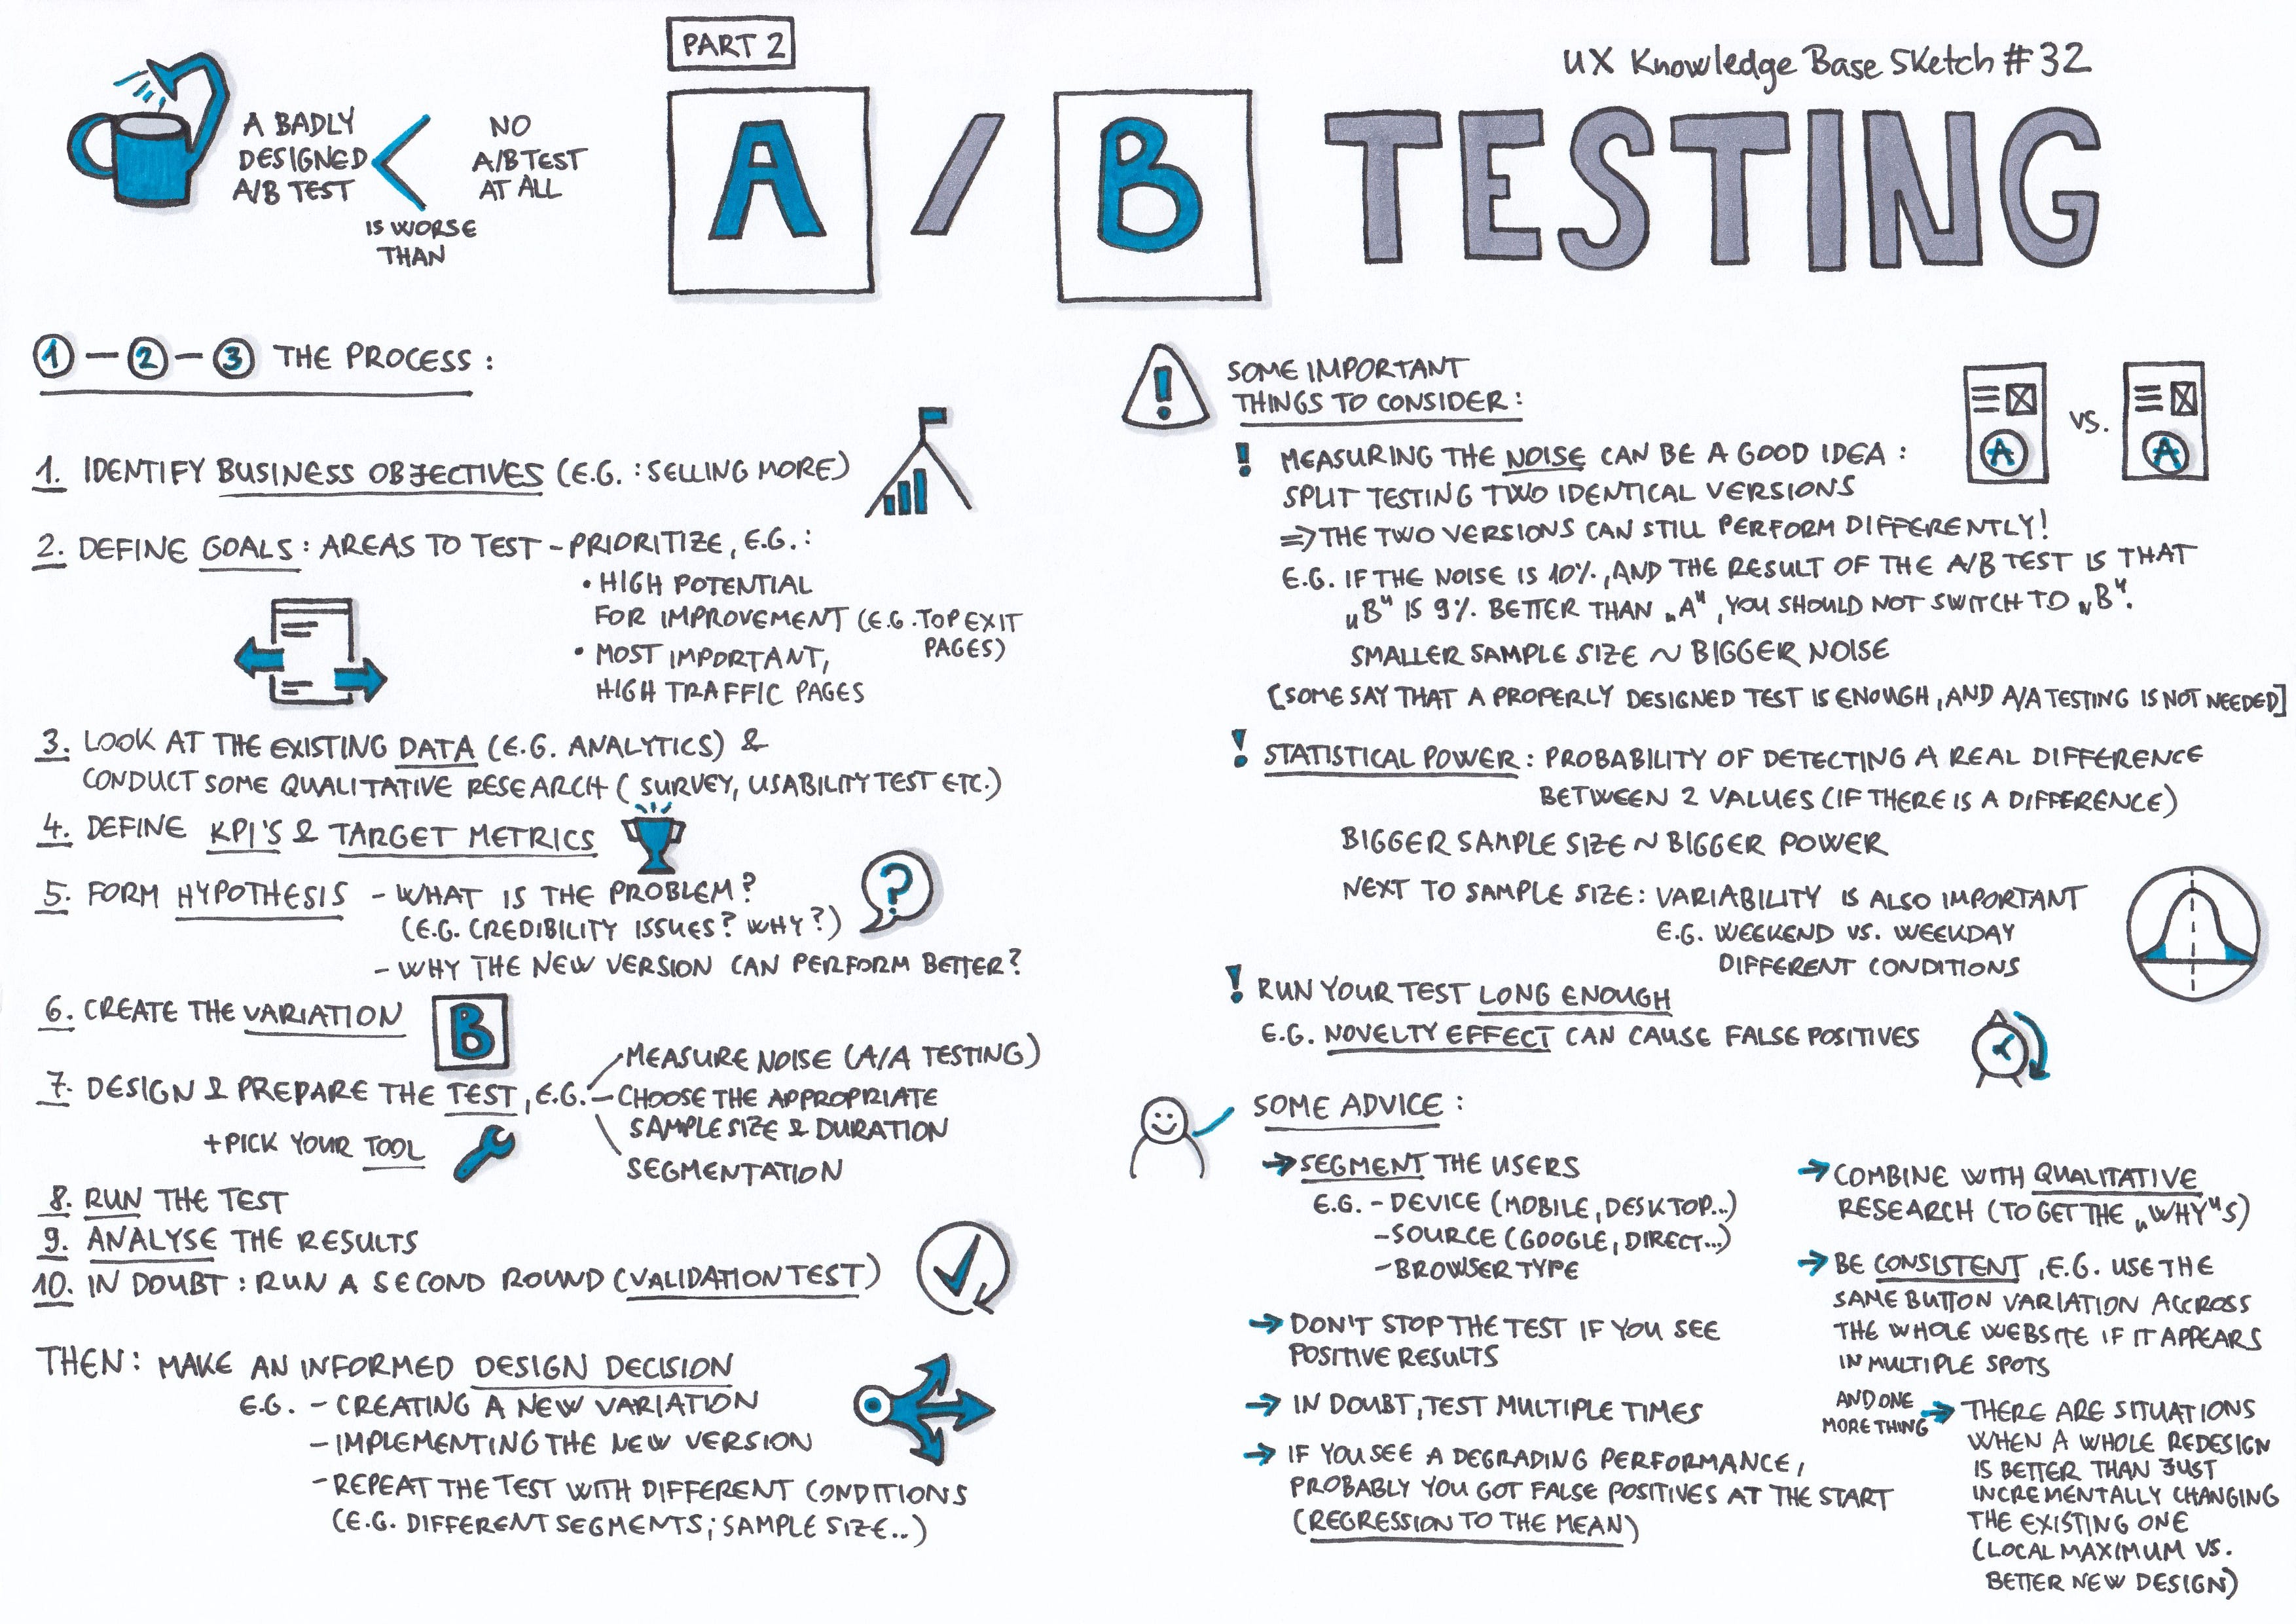 PART 2
UX Knowledge Base Sketch #32
A / B TESTING
A BADLY
DESIGNED
A/B TEST
<
IS WORSE
THAN
NO
A/B TEST
AT ALL
1 — 2 — 3 THE PROCESS:
1. IDENTIFY BUSINESS OBJECTIVES (E.G.: SELLING MORE)
2. DEFINE GOALS: AREAS TO TEST - PRIORITIZE, E.G.:
• HIGH POTENTIAL
FOR IMPROVEMENT (E.G. TOP EXIT
PAGES)
• MOST IMPORTANT,
HIGH TRAFFIC PAGES
3. LOOK AT THE EXISTING DATA (E.G. ANALYTICS) &
CONDUCT SOME QUALITATIVE RESEARCH (SURVEY, USABILITY TEST ETC.)
4. DEFINE KPI'S & TARGET METRICS
5. FORM HYPOTHESIS - WHAT IS THE PROBLEM?
(E.G. CREDIBILITY ISSUES? WHY?)
?
- WHY THE NEW VERSION CAN PERFORM BETTER?
6. CREATE THE VARIATION
B
7. DESIGN & PREPARE THE TEST, E.G.
MEASURE NOISE (A/A TESTING)
CHOOSE THE APPROPRIATE
SAMPLE SIZE & DURATION
SEGMENTATION
+ PICK YOUR TOOL
8. RUN THE TEST
9. ANALYSE THE RESULTS
10. IN DOUBT: RUN A SECOND ROUND (VALIDATION TEST)
THEN: MAKE AN INFORMED DESIGN DECISION
E.G. - CREATING A NEW VARIATION
- IMPLEMENTING THE NEW VERSION
- REPEAT THE TEST WITH DIFFERENT CONDITIONS
(E.G. DIFFERENT SEGMENTS; SAMPLE SIZE..)
! SOME IMPORTANT
THINGS TO CONSIDER:
A VS. A
! MEASURING THE NOISE CAN BE A GOOD IDEA:
SPLIT TESTING TWO IDENTICAL VERSIONS
=> THE TWO VERSIONS CAN STILL PERFORM DIFFERENTLY!
E.G. IF THE NOISE IS 10%, AND THE RESULT OF THE A/B TEST IS THAT
„B" IS 9% BETTER THAN „A", YOU SHOULD NOT SWITCH TO „B".
SMALLER SAMPLE SIZE ~ BIGGER NOISE
[SOME SAY THAT A PROPERLY DESIGNED TEST IS ENOUGH, AND A/A TESTING IS NOT NEEDED]
! STATISTICAL POWER: PROBABILITY OF DETECTING A REAL DIFFERENCE
BETWEEN 2 VALUES (IF THERE IS A DIFFERENCE)
BIGGER SAMPLE SIZE ~ BIGGER POWER
NEXT TO SAMPLE SIZE: VARIABILITY IS ALSO IMPORTANT
E.G. WEEKEND VS. WEEKDAY
DIFFERENT CONDITIONS
! RUN YOUR TEST LONG ENOUGH
E.G. NOVELTY EFFECT CAN CAUSE FALSE POSITIVES
SOME ADVICE:
→ SEGMENT THE USERS
E.G. - DEVICE (MOBILE, DESKTOP...)
- SOURCE (GOOGLE, DIRECT...)
- BROWSER TYPE
→ DON'T STOP THE TEST IF YOU SEE
POSITIVE RESULTS
→ IN DOUBT, TEST MULTIPLE TIMES
→ IF YOU SEE A DEGRADING PERFORMANCE,
PROBABLY YOU GOT FALSE POSITIVES AT THE START
(REGRESSION TO THE MEAN)
→ COMBINE WITH QUALITATIVE
RESEARCH (TO GET THE „WHY"S)
→ BE CONSISTENT, E.G. USE THE
SAME BUTTON VARIATION ACCROSS
THE WHOLE WEBSITE IF IT APPEARS
IN MULTIPLE SPOTS
AND ONE
MORE THING
→ THERE ARE SITUATIONS
WHEN A WHOLE REDESIGN
IS BETTER THAN JUST
INCREMENTALLY CHANGING
THE EXISTING ONE
(LOCAL MAXIMUM VS.
BETTER NEW DESIGN)